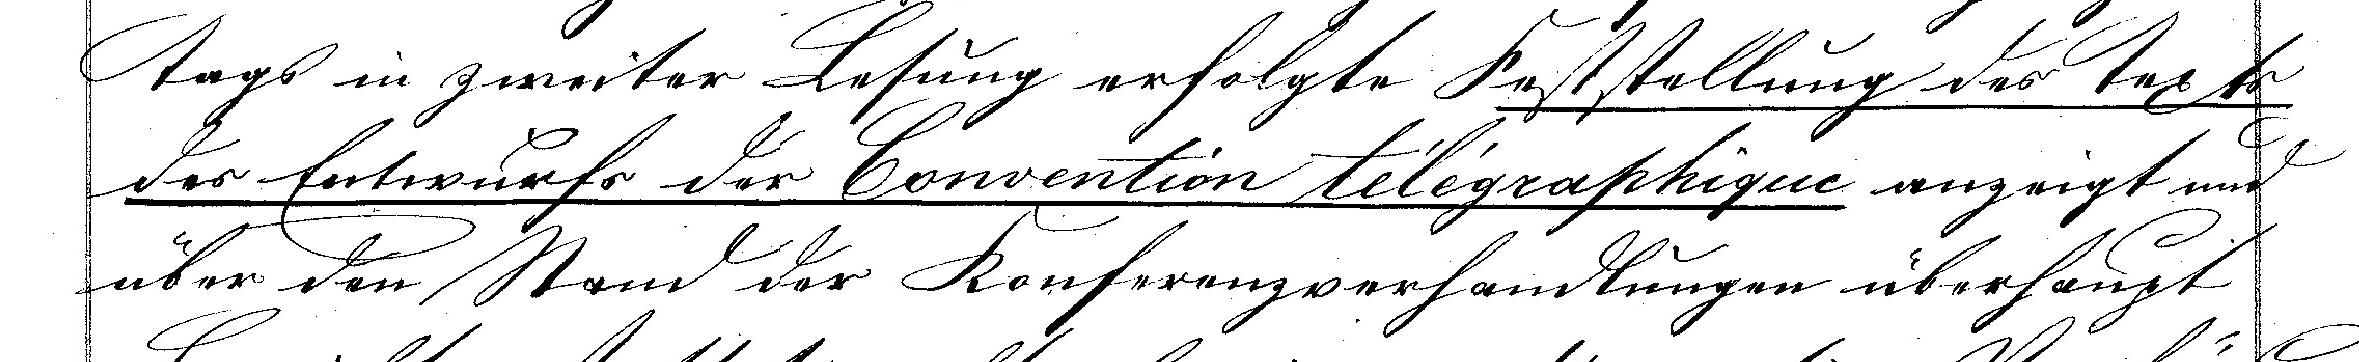 tags in zweiter Lesung erfolgte Feststellung des Texts
des Entwurfs der Convention télégraphique anzeigt und
über den Stand der Konferenzverhandlungen überhaupt